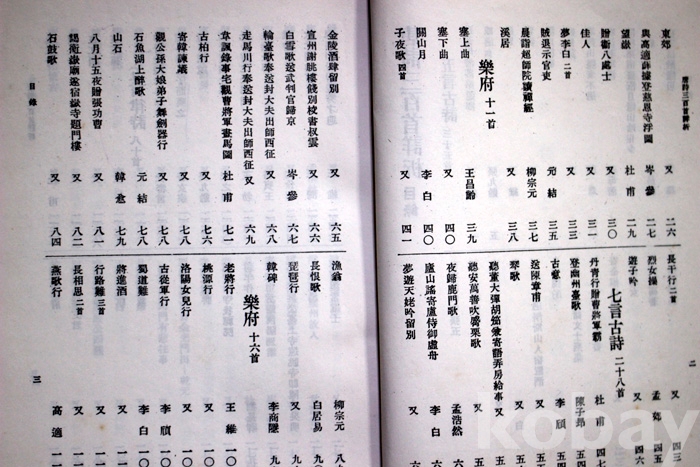 唐詩三百首詳析
東郊 又 二六
與高適薛據登慈恩寺浮圖 岑參
望嶽 杜甫 二九
贈衛八處士 又 三〇
佳人 又 三一
夢李白二首 又 三三
賊退示官吏 元結 三五
晨詣超師院讀禪經 柳宗元 三七
溪居 又 三八
樂府 十一首
塞上曲 王昌齡 三九
塞下曲 又 四〇
關山月 李白 四〇
子夜歌四首 又 四一
長干行二首 又 四三
烈女操 孟郊 四五
遊子吟 又 四六
七言古詩 二十八首
丹青行贈曹將軍霸 杜甫 四
登幽州臺歌 陳子昂
古意 李頎
送陳章甫 又 五
琴歌 又 五
聽董大彈胡笳兼寄語弄房給事 又 五
聽安萬善吹觱篥歌 又 五
夜歸鹿門歌 孟浩然 五
廬山謠寄盧侍御虛舟 李白
夢遊天姥吟留別 又 六
二
金陵酒肆留別 又 六五
宣州謝朓樓餞別校書叔雲 又 六六
白雪歌送武判官歸京 岑參 六七
輪臺歌奉送封大夫出師西征 又 六八
走馬川行奉送封大夫出師西征 又 六九
韋諷錄事宅觀曹將軍畫馬圖 杜甫 七一
古柏行 又 七六
寄韓諫議 又 七七
觀公孫大娘弟子舞劍器行 又 七八
石魚湖上醉歌 元結 七八
山石 韓愈 七九
八月十五夜贈張功曹 又 八一
謁衡嶽廟遂宿嶽寺題門樓 又 八二
石鼓歌 又 八四
漁翁 柳宗元 八
長恨歌 白居易 九
琵琶行 又 九
韓碑 李商隱 九
樂府 十六首
老將行 王維 一〇
桃源行 又 一〇
洛陽女兒行 又 一〇
古從軍行 李頎 一〇
蜀道難 李白 一〇
將進酒 又 一一
行路難三首 又 一一
長相思二首 又 一一
燕歌行 高適 一一
目錄
三
kobay